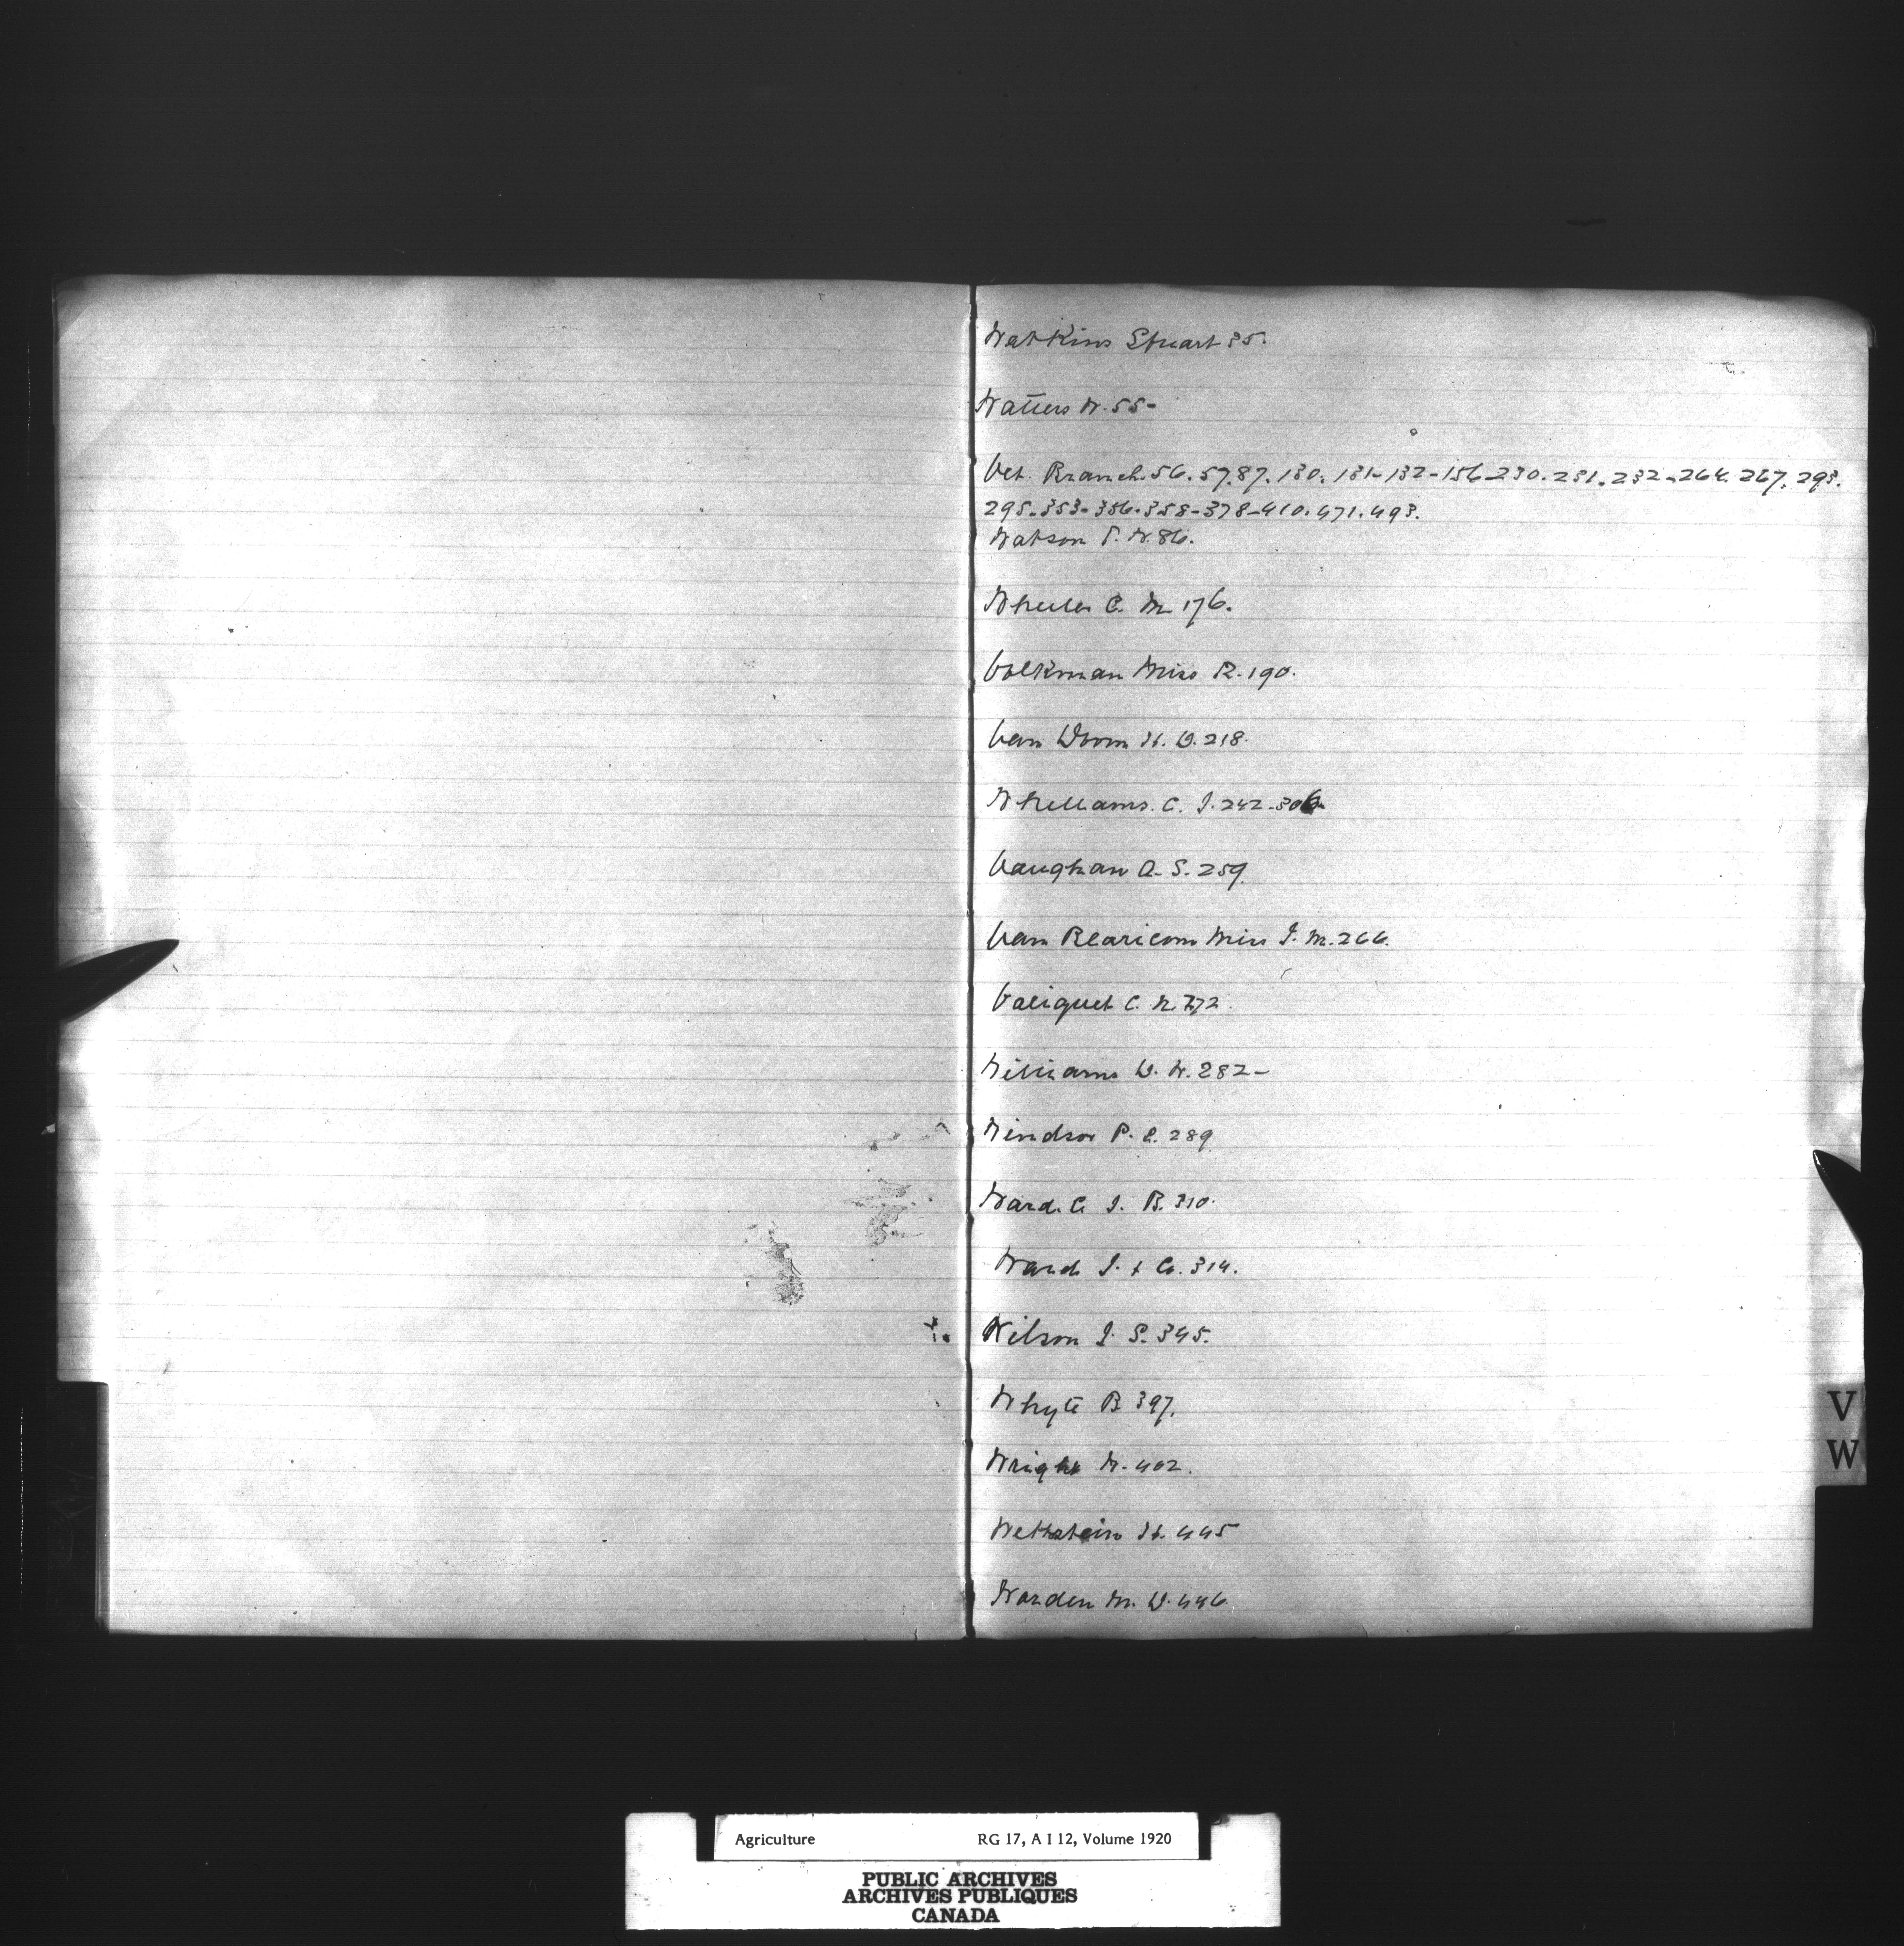 Watkins Stuart 35.
Watters W. 55-
Vet. Branch. 56. 57. 87. 130. 131-132-156-230. 231. 232-264. 267. 293.
295-353-356-358-378-410. 471. 493.
Watson P. W. 86.
Wheeler C. M. 176.
Volkman Miss R. 190.
Van Doorn H. D. 218.
Whelliams. C. J. 242-306
Vaughan A. S. 259.
Van Blaricom Miss J. M. 266.
Valiquet C. N. 272.
Williams D. W. 282-
Windsor P. E. 289
Ward. C. J. B. 310.
Ward J. & Co. 314.
Wilson J. S. 345.
Whyte B 397.
Wright W. 402.
Wettstein H. 445
Warden M. D. 446.
V
W
Agriculture RG 17, A I 12, Volume 1920
PUBLIC ARCHIVES
ARCHIVES PUBLIQUES
CANADA